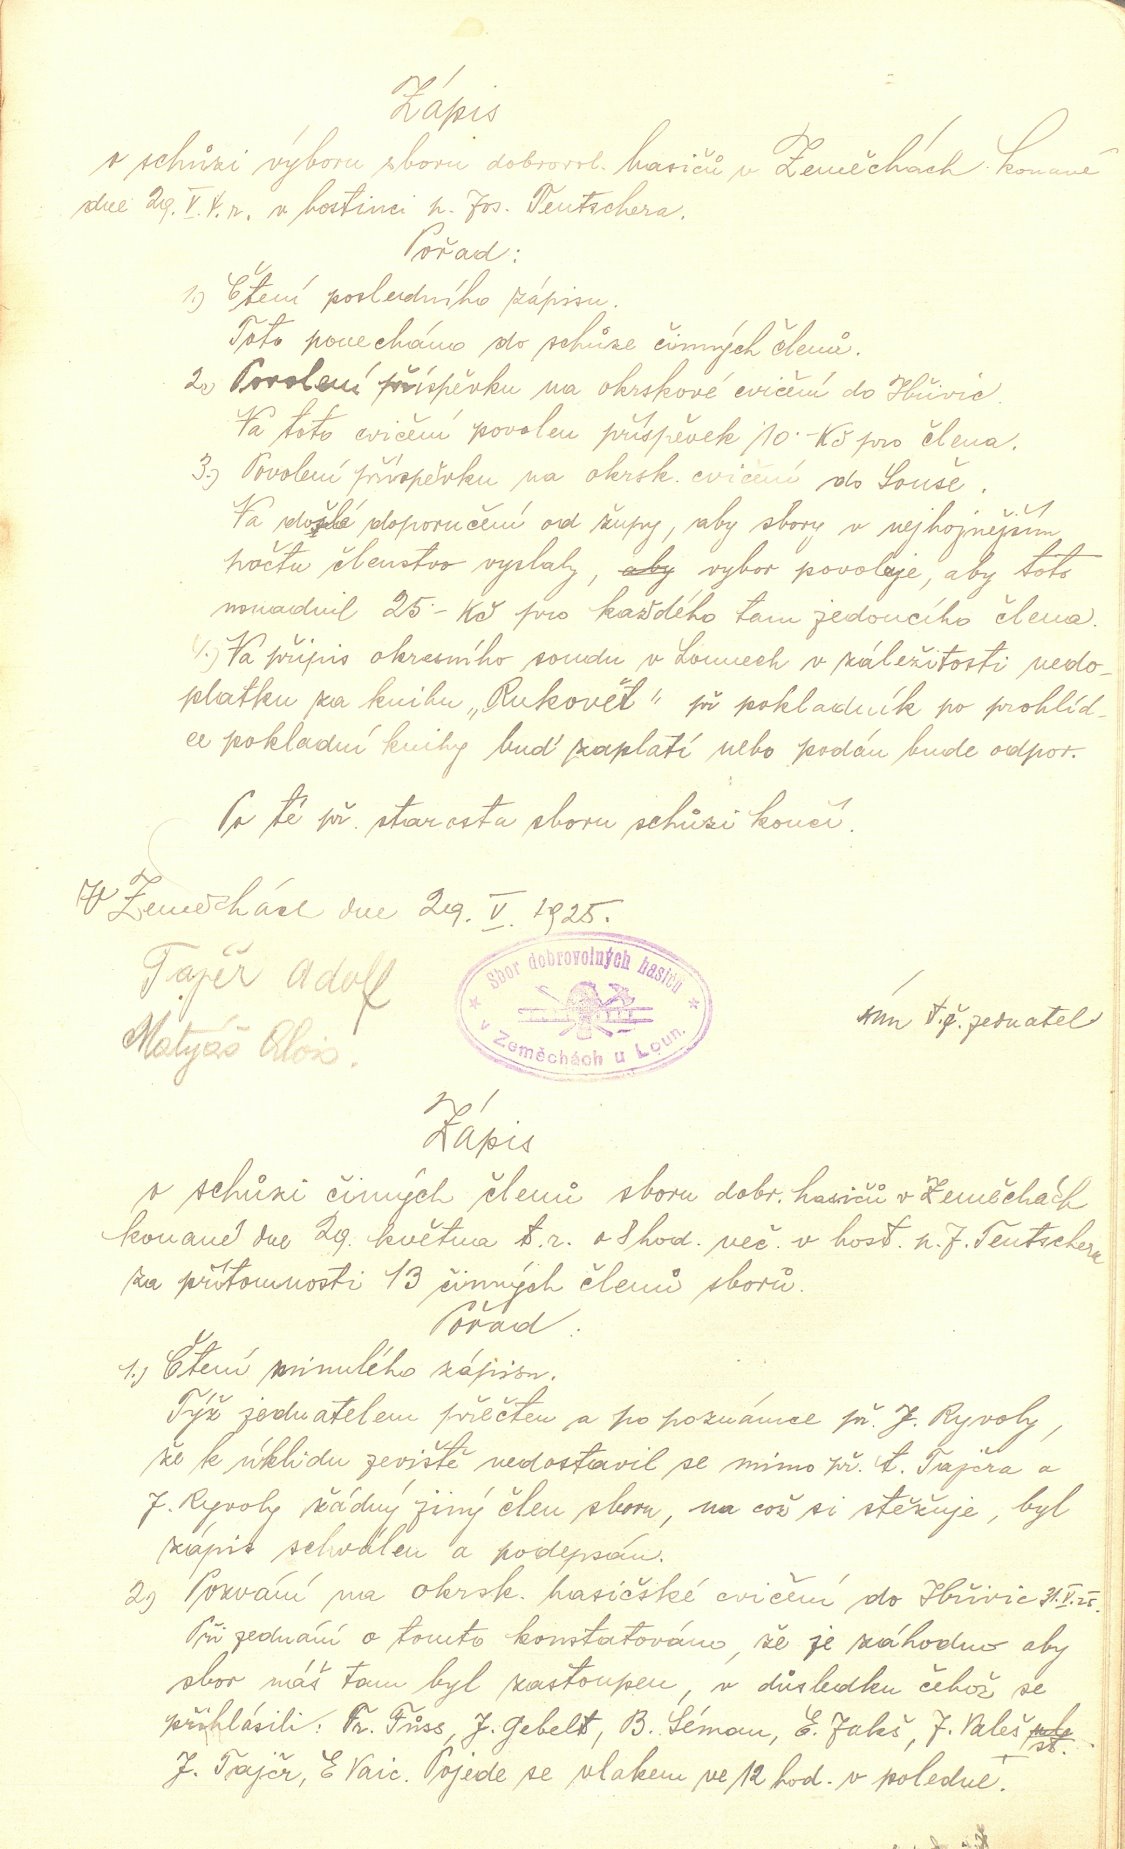 Zápis
o schůzi výboru sboru dobrovol. hasičů v Zeměchách konané
dne 29. V. t. r. v hostinci p. Jos. Teutschera.
Pořad:
1.) Čtení posledního zápisu.
Toto ponecháno do schůze činných členů.
2.) Povolení příspěvku na okrskové cvičení do Hřivic.
Na toto cvičení povolen příspěvek 10.- Kč pro člena.
3.) Povolení příspěvku na okrsk. cvičení do Louše.
Na došlé doporučení od župy, aby sbory v nejhojnějším
počtu členstvo vyslaly, aby vybor povoluje, aby toto
25.- Kč pro každého tam jedoucího člena.
4.) Na přípis okresního soudu v Lounech v záležitosti nedo-
platku za knihu „Rukověť" př pokladník po prohlíd-
ce pokladní knihy buď zaplatí nebo podán bude odpor.
Po té př. starosta sboru schůzi končí.
V Zeměchách dne 29. V. 1925.
Tajčr Adolf
Sbor dobrovolných hasičů
v Zeměchách u Loun.
t. č. jednatel
Matyáš Alois.
Zápis
o schůzi činných členů sboru dobr. hasičů v Zeměchách
konané dne 29. května t. r. o 8 hod. več. v host. p. J. Teutschera
za přítomnosti 13 činných členů sborů.
Pořad:
1.) Čtení minulého zápisu.
Týž jednatelem přečten a po poznámce př. J. Ryvoly,
že k úklidu jeviště nedostavil se mimo př. t. Tajčra a
J. Ryvoly žádný jiný člen sboru, na což si stěžuje, byl
zápis schválen a podepsán.
2.) Pozvání na okrsk. hasičské cvičení do Hřivic 31. V. 25.
Při jednání o tomto konstatováno, že je záhodno aby
sbor náš tam byl zastoupen, v důsledku čehož se
přihlásili: Fr. Füss, J. Gebelt, B. Léman, E. Jakš, J. Valeš st.
J. Tajčr, E Vaic. Pojede se vlakem ve 12 hod. v poledne.